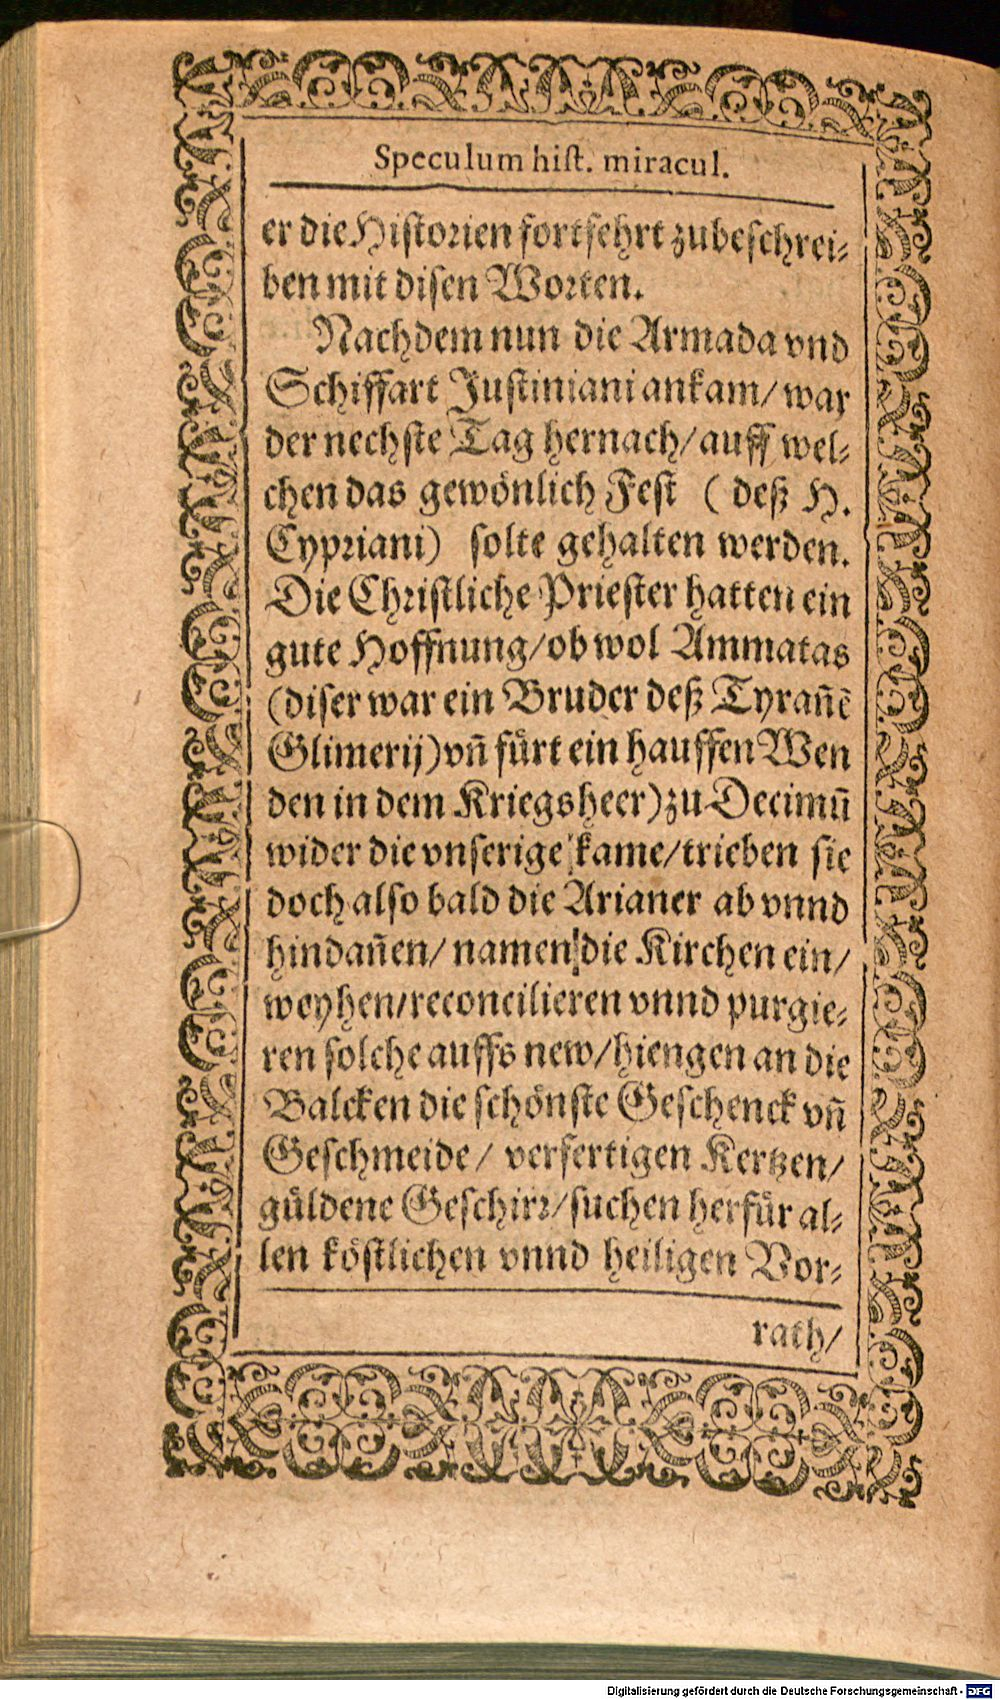 Speculum hist. miracul.
er die Historien fortfehrt zubeschrei-
ben mit disen Worten.
Nachdem nun die Armada vnd
Schiffart Justiniani ankam/ war
der nechste Tag hernach/ auff wel-
chen das gewönlich Fest ( deß H.
Cypriani) solte gehalten werden.
Die Christliche Priester hatten ein
gute Hoffnung/ ob wol Ammatas
(diser war ein Bruder deß Tyrañẽ
Glimerij) vñ fürt ein hauffen Wen
den in dem Kriegsheer) zu Decimũ
wider die vnserige kame/ trieben sie
doch also bald die Arianer ab vnnd
hindañen/ namen die Kirchen ein/
weyhen/ reconcilieren vnnd purgie-
ren solche auffs new/ hiengen an die
Balcken die schönste Geschenck vñ
Geschmeide/ verfertigen Kertzen/
güldene Geschirr/ suchen herfür al-
len köstlichen vnnd heiligen Vor-
rath/
Digitalisierung gefördert durch die Deutsche Forschungsgemeinschaft - DFG